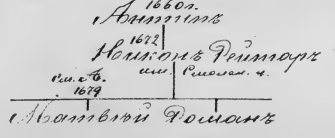 1660г.
Антипъ
1672
Никонъ Рейтаръ
им. Смолен. у.
см. А.
1679
Матвѣй Романъ